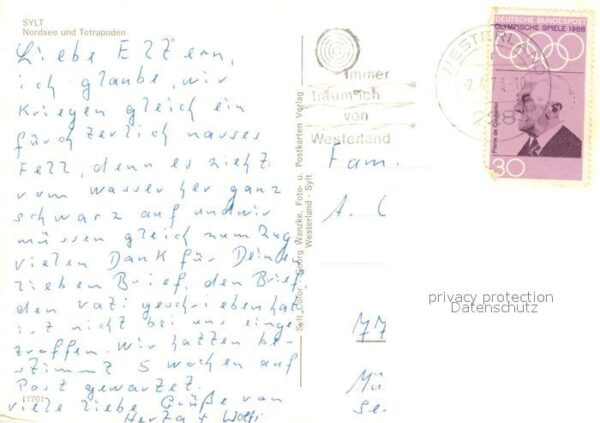 SYLT
Nordsee und Tetrapoden
Liebe Eltern,
ich glaube, wir
kriegen gleich ein
fürchterlich nasses
Fell, denn es zieht
vom Wasser her ganz
schwarz auf und wir
müssen gleich zum Zug
vielen Dank für Deinen
lieben Brief. den Brief
den Vati geschrieben hat
ist nicht bei uns einge
troffen. Wir hatten be-
stimmt 5 Wochen auf
Post gewartet.
viele liebe Grüße von
Herta + Wolfi
11701
Sylt Color - Georg Wanzke, Foto- u. Postkarten Verlag
Westerland - Sylt
Immer
träum ich
von
Westerland
WESTERLAND
DEUTSCHE BUNDESPOST
OLYMPISCHE SPIELE 1968
Pierre de Coubertin
30
Fam.
A. C
77
Mü
Se.
privacy protection
Datenschutz